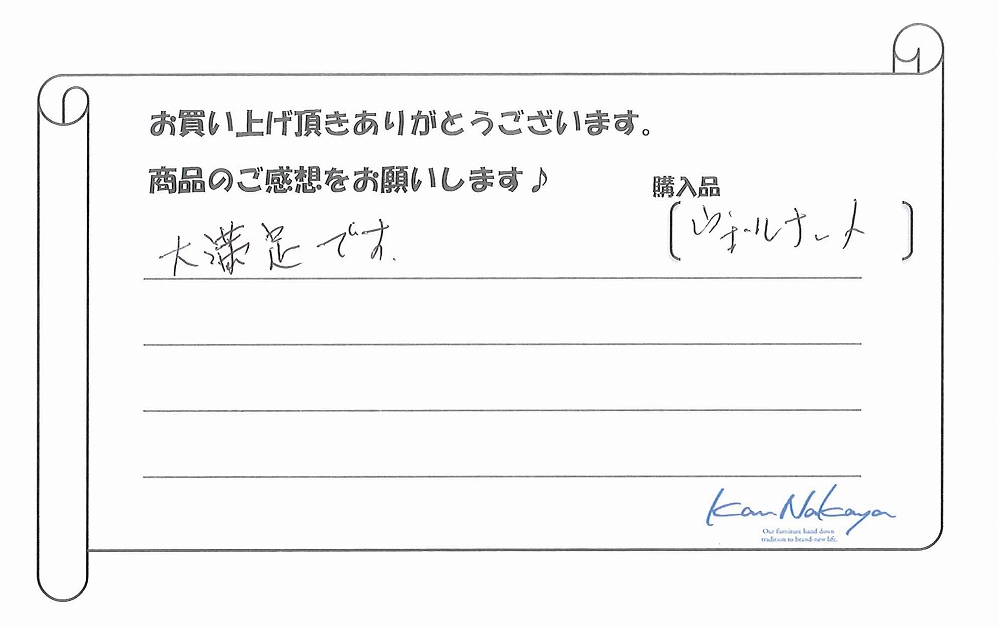 お買い上げ頂きありがとうございます。
商品のご感想をお願いします♪
購入品
大満足です.
Kam Nakaya
Our furniture hand down
tradition to brand-new life.